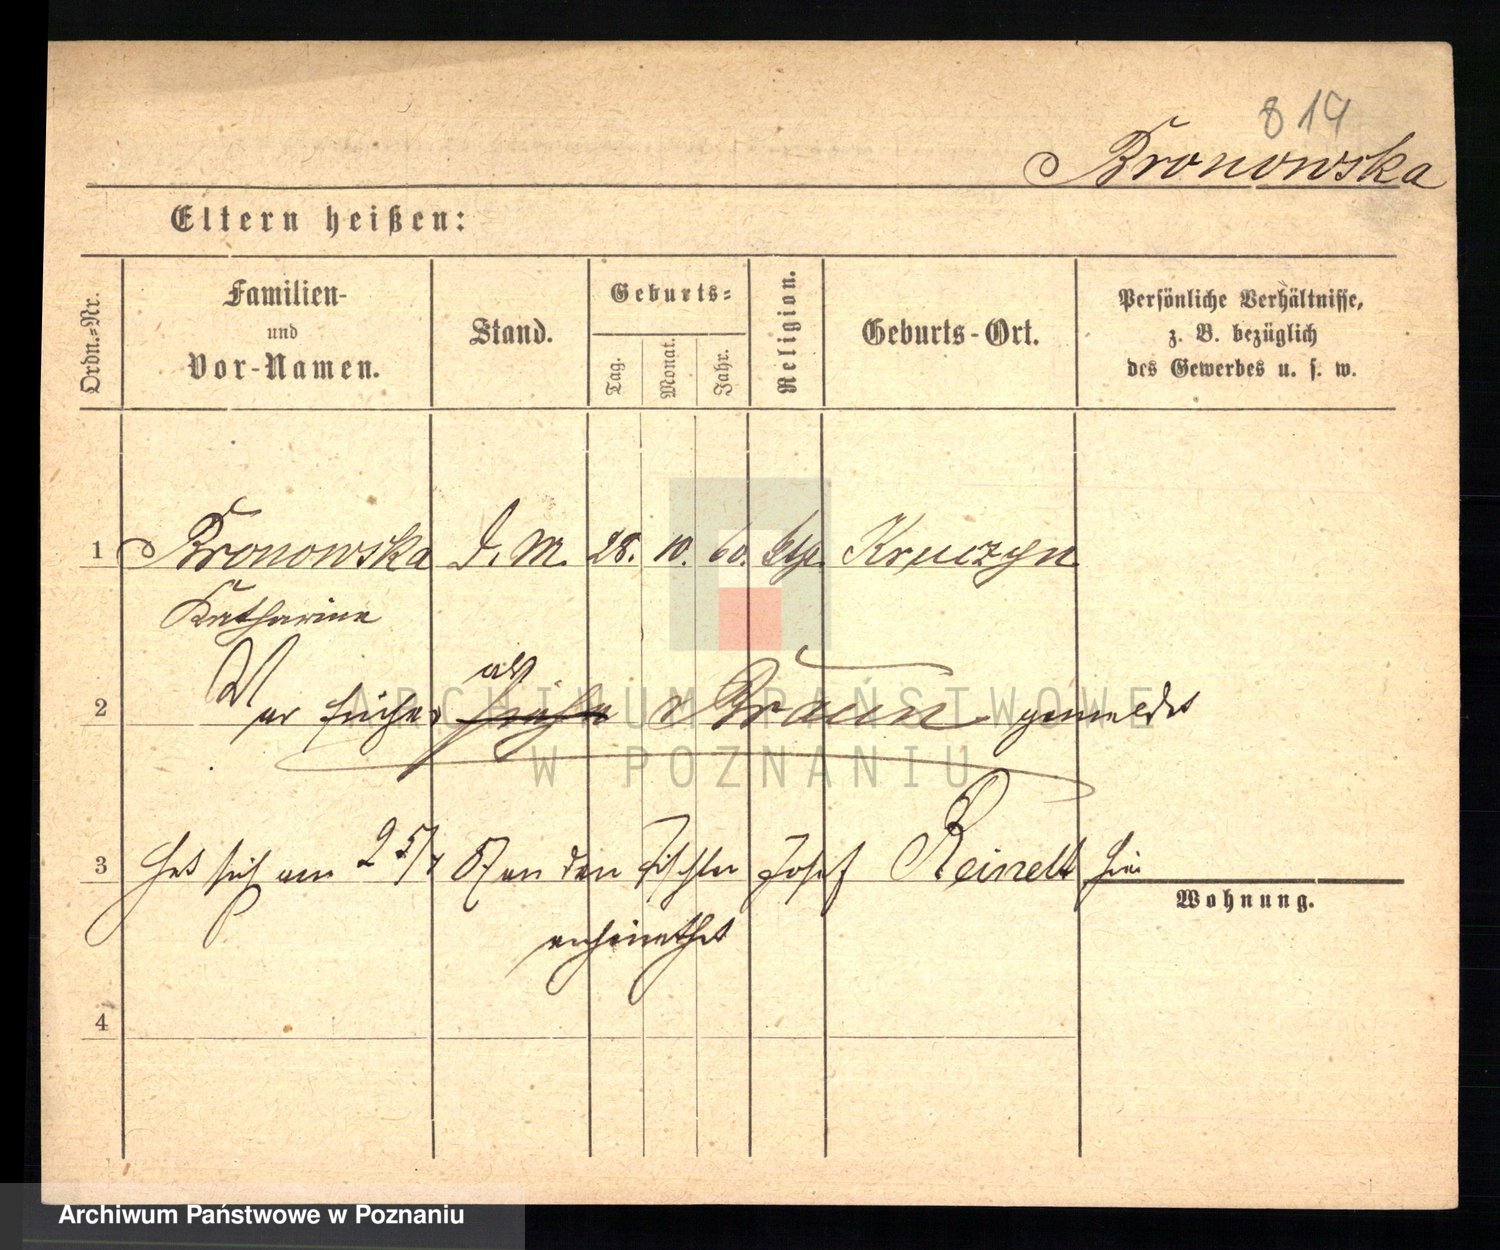 819
Bronowska
Eltern heißen:
Ordn.=Nr.
Familien-
und
Vor-Namen.
Stand.
Geburts=
Tag.
Monat.
Jahr.
Religion.
Geburts-Ort.
Persönliche Verhältnisse,
z. B. bezüglich
des Gewerbes u. s. w.
1 Bronowska D. M. 28. 10. 60. kth. Kruczyn
Katharine
als
2 War früher Braun gemeldet
ARCHIWUM PAŃSTWOWE
W POZNANIU
3 Hat sich am 25/7 87 an den Tischler Josef Reinelt hier
Wohnung.
verheirathet
4
Archiwum Państwowe w Poznaniu